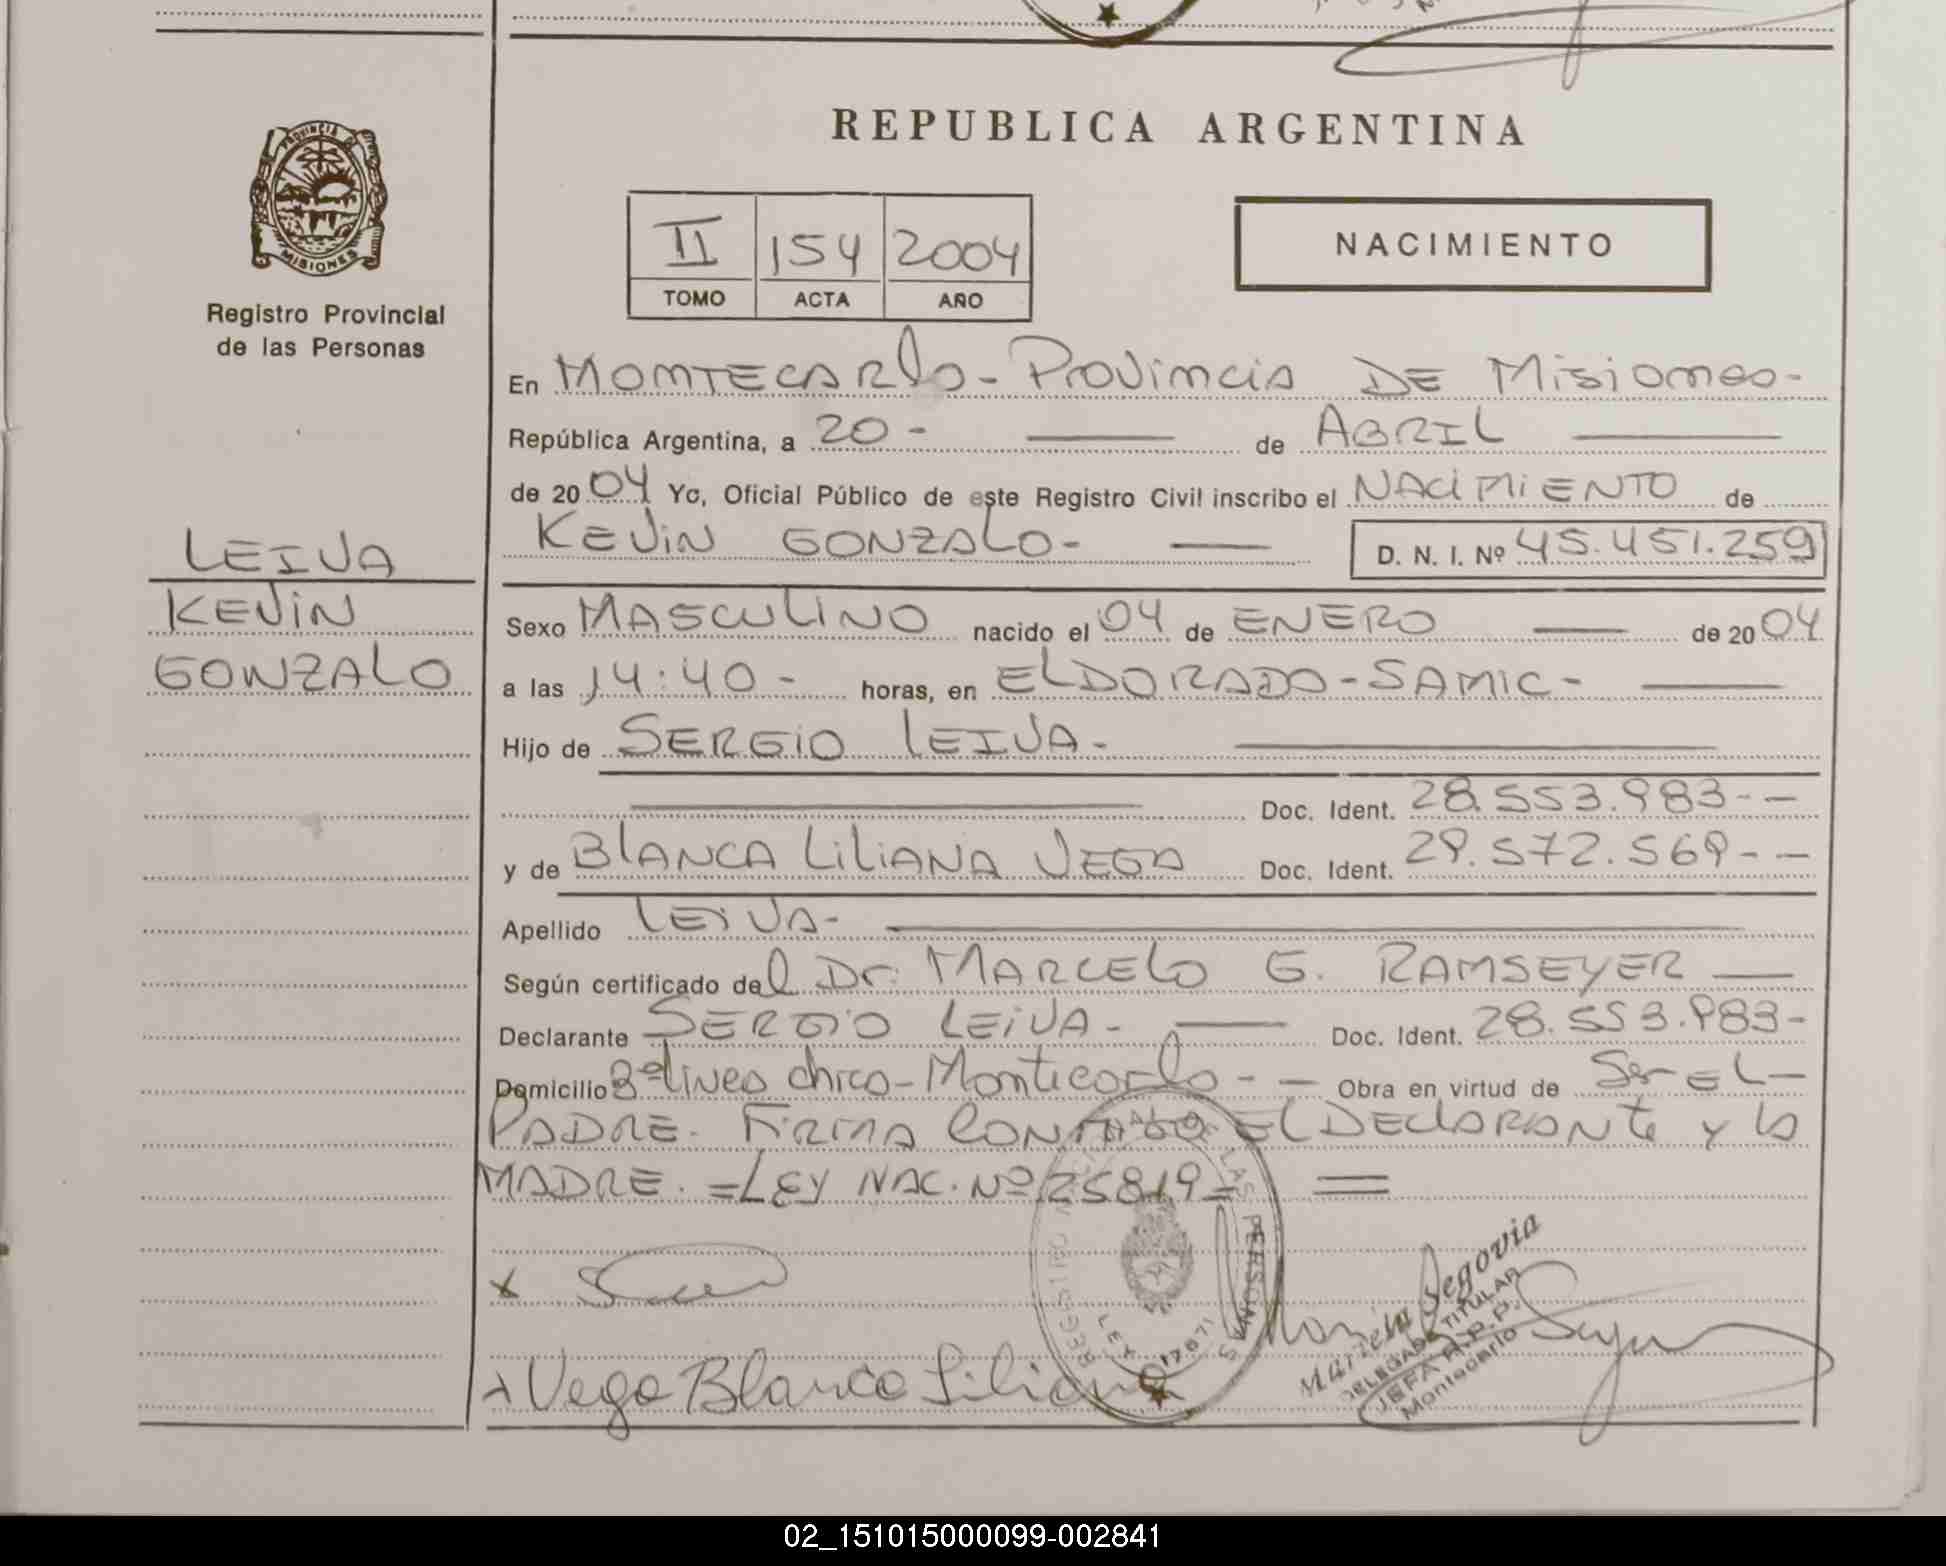 REPUBLICA ARGENTINA
PROVINCIA DE MISIONES
Registro Provincial
de las Personas
II 154 2004
TOMO ACTA AÑO
NACIMIENTO
En MONTECARLO - PROVINCIA DE MISIONES -
República Argentina, a 20 - de ABRIL
de 2004 Yo, Oficial Público de este Registro Civil inscribo el NACIMIENTO de
KEVIN GONZALO - D. N. I. Nº 45.451.259
LEIVA
KEVIN
GONZALO
Sexo MASCULINO nacido el 04 de ENERO de 2004
a las 14:40 - horas, en ELDORADO - SAMIC -
Hijo de SERGIO LEIVA -
Doc. Ident. 28.553.983 - -
y de BLANCA LILIANA VEGA Doc. Ident. 29.572.569 - -
Apellido LEIVA -
Según certificado del Dr. MARCELO G. RAMSEYER
Declarante SERGIO LEIVA - Doc. Ident. 28.553.983 -
Domicilio Bº Lives chico - Montecarlo - - Obra en virtud de Ser EL -
PADRE. FIRMA CONMIGO EL DECLARANTE y la
MADRE. = LEY NAC. Nº 25819 =
REGISTRO NACIONAL DE LAS PERSONAS
LEY 17671
x
x Vega Blanca Liliana
Mariela Segovia
DELEGADA TITULAR
JEFA R.P.P.
Montecarlo
02_151015000099-002841